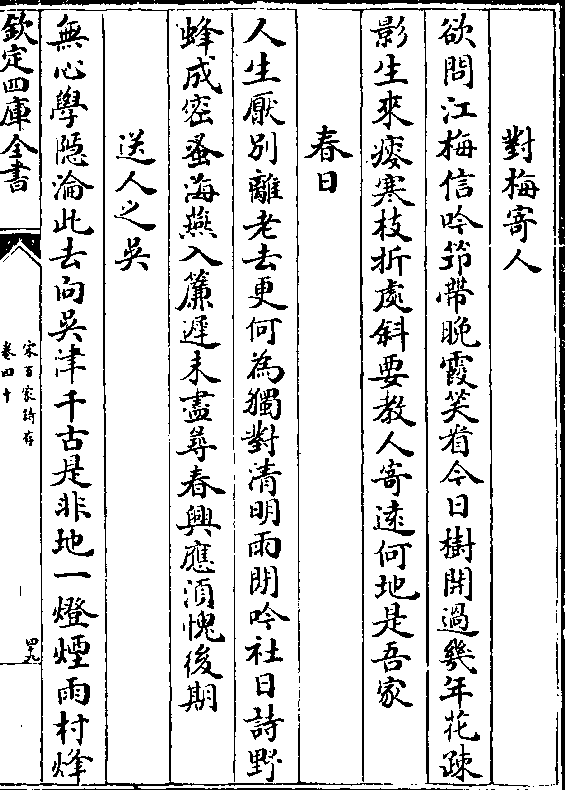 對梅寄人
欲問江梅信吟笻帶晚霞笑看今日樹開過幾年花疎
影生來瘦寒枝折處斜要教人寄遠何地是吾家
春日
人生厭別離老去更何為獨對清明雨閒吟社日詩野
蜂成宻蚤海燕入簾遲未盡尋春興應湏愧後期
送人之吳
無心學隱淪此去向吳津千古是非地一燈煙雨村烽
欽定四庫全書
宋百家詩存
卷四十
四九